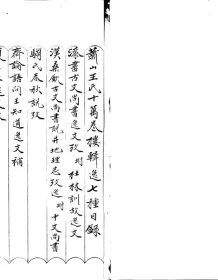 蕭山王氏十萬卷樓輯逸七種目錄
漆書古文尚書逸文攷 附杜林訓故逸文
漢桑欽古文尚書說并地理志攷逸 附中文尚書
騶氏春秋說攷
齊論語問王知道逸文補